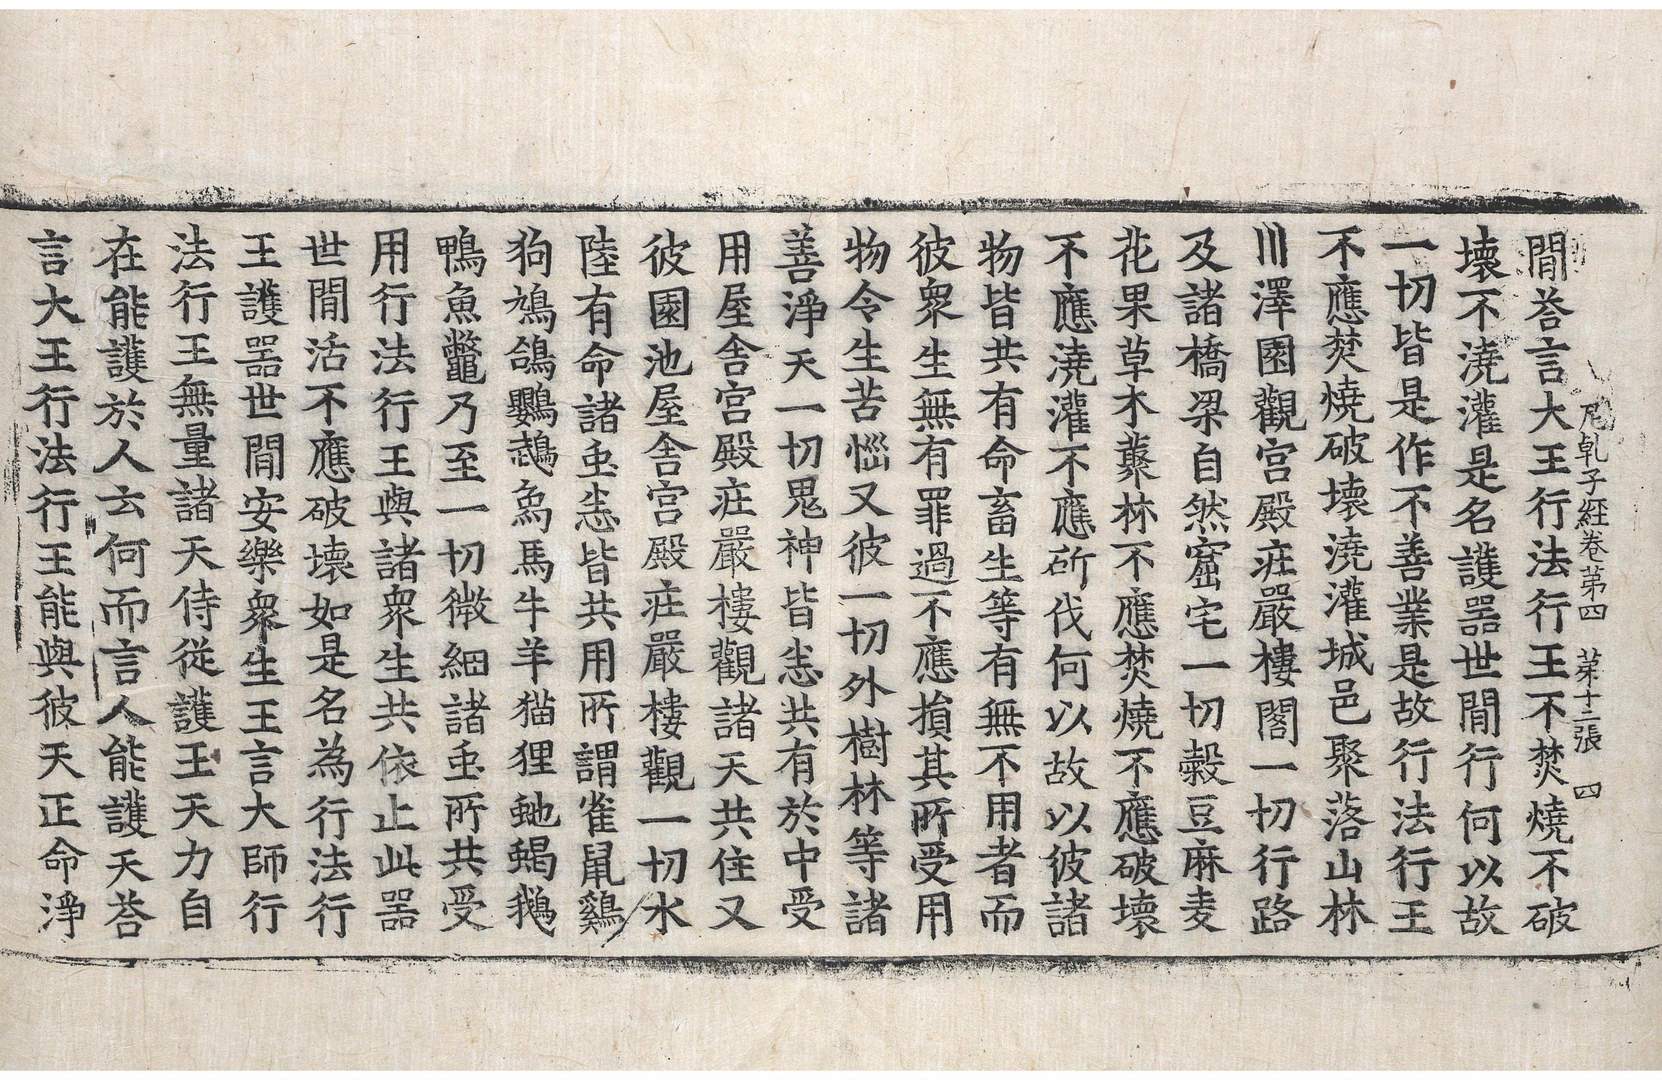 尼乹子經卷第四 第十二張 四
間荅言大王行法行王不焚燒不破
壞不澆灌是名護器世間行何以故
一切皆是作不善業是故行法行王
不應焚燒破壞澆灌城邑聚落山林
川澤園觀宮殿庄嚴樓閣一切行路
及諸橋梁自然窟宅一切穀豆麻麦
花果草木藂林不應焚燒不應破壞
不應澆灌不應斫伐何以故以彼諸
物皆共有命畜生等有無不用者而
彼衆生無有罪過不應損其所受用
物令生苦惱又彼一切外樹林等諸
善淨天一切鬼神皆悉共有於中受
用屋舍宮殿庄嚴樓觀諸天共住又
彼園池屋舍宮殿庄嚴樓觀一切水
陸有命諸虫悉皆共用所謂雀鼠鷄
狗鳩鴿鸚鵡象馬牛羊猫狸虵蝎鵝
鴨魚鼈乃至一切微細諸虫所共受
用行法行王與諸衆生共依止此器
世間活不應破壞如是名為行法行
王護器世間安樂衆生王言大師行
法行王無量諸天侍從護王天力自
在能護於人云何而言人能護天荅
言大王行法行王能與彼天正命淨